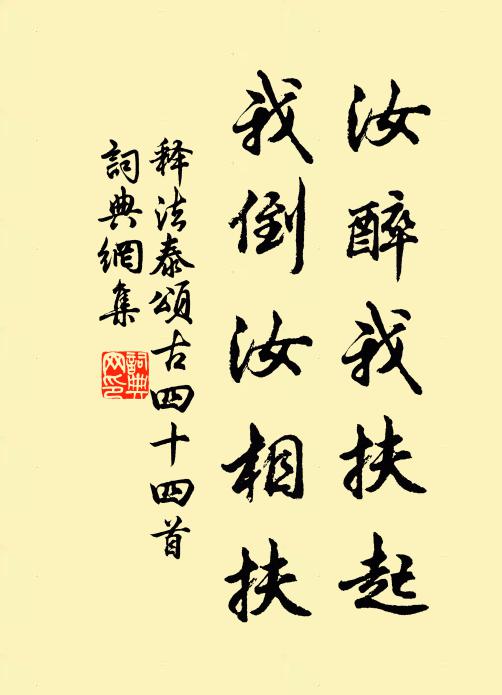 汝醉我扶起
我倒汝相扶
释法泰頌古四十四首
詞典網集
詞典
网印